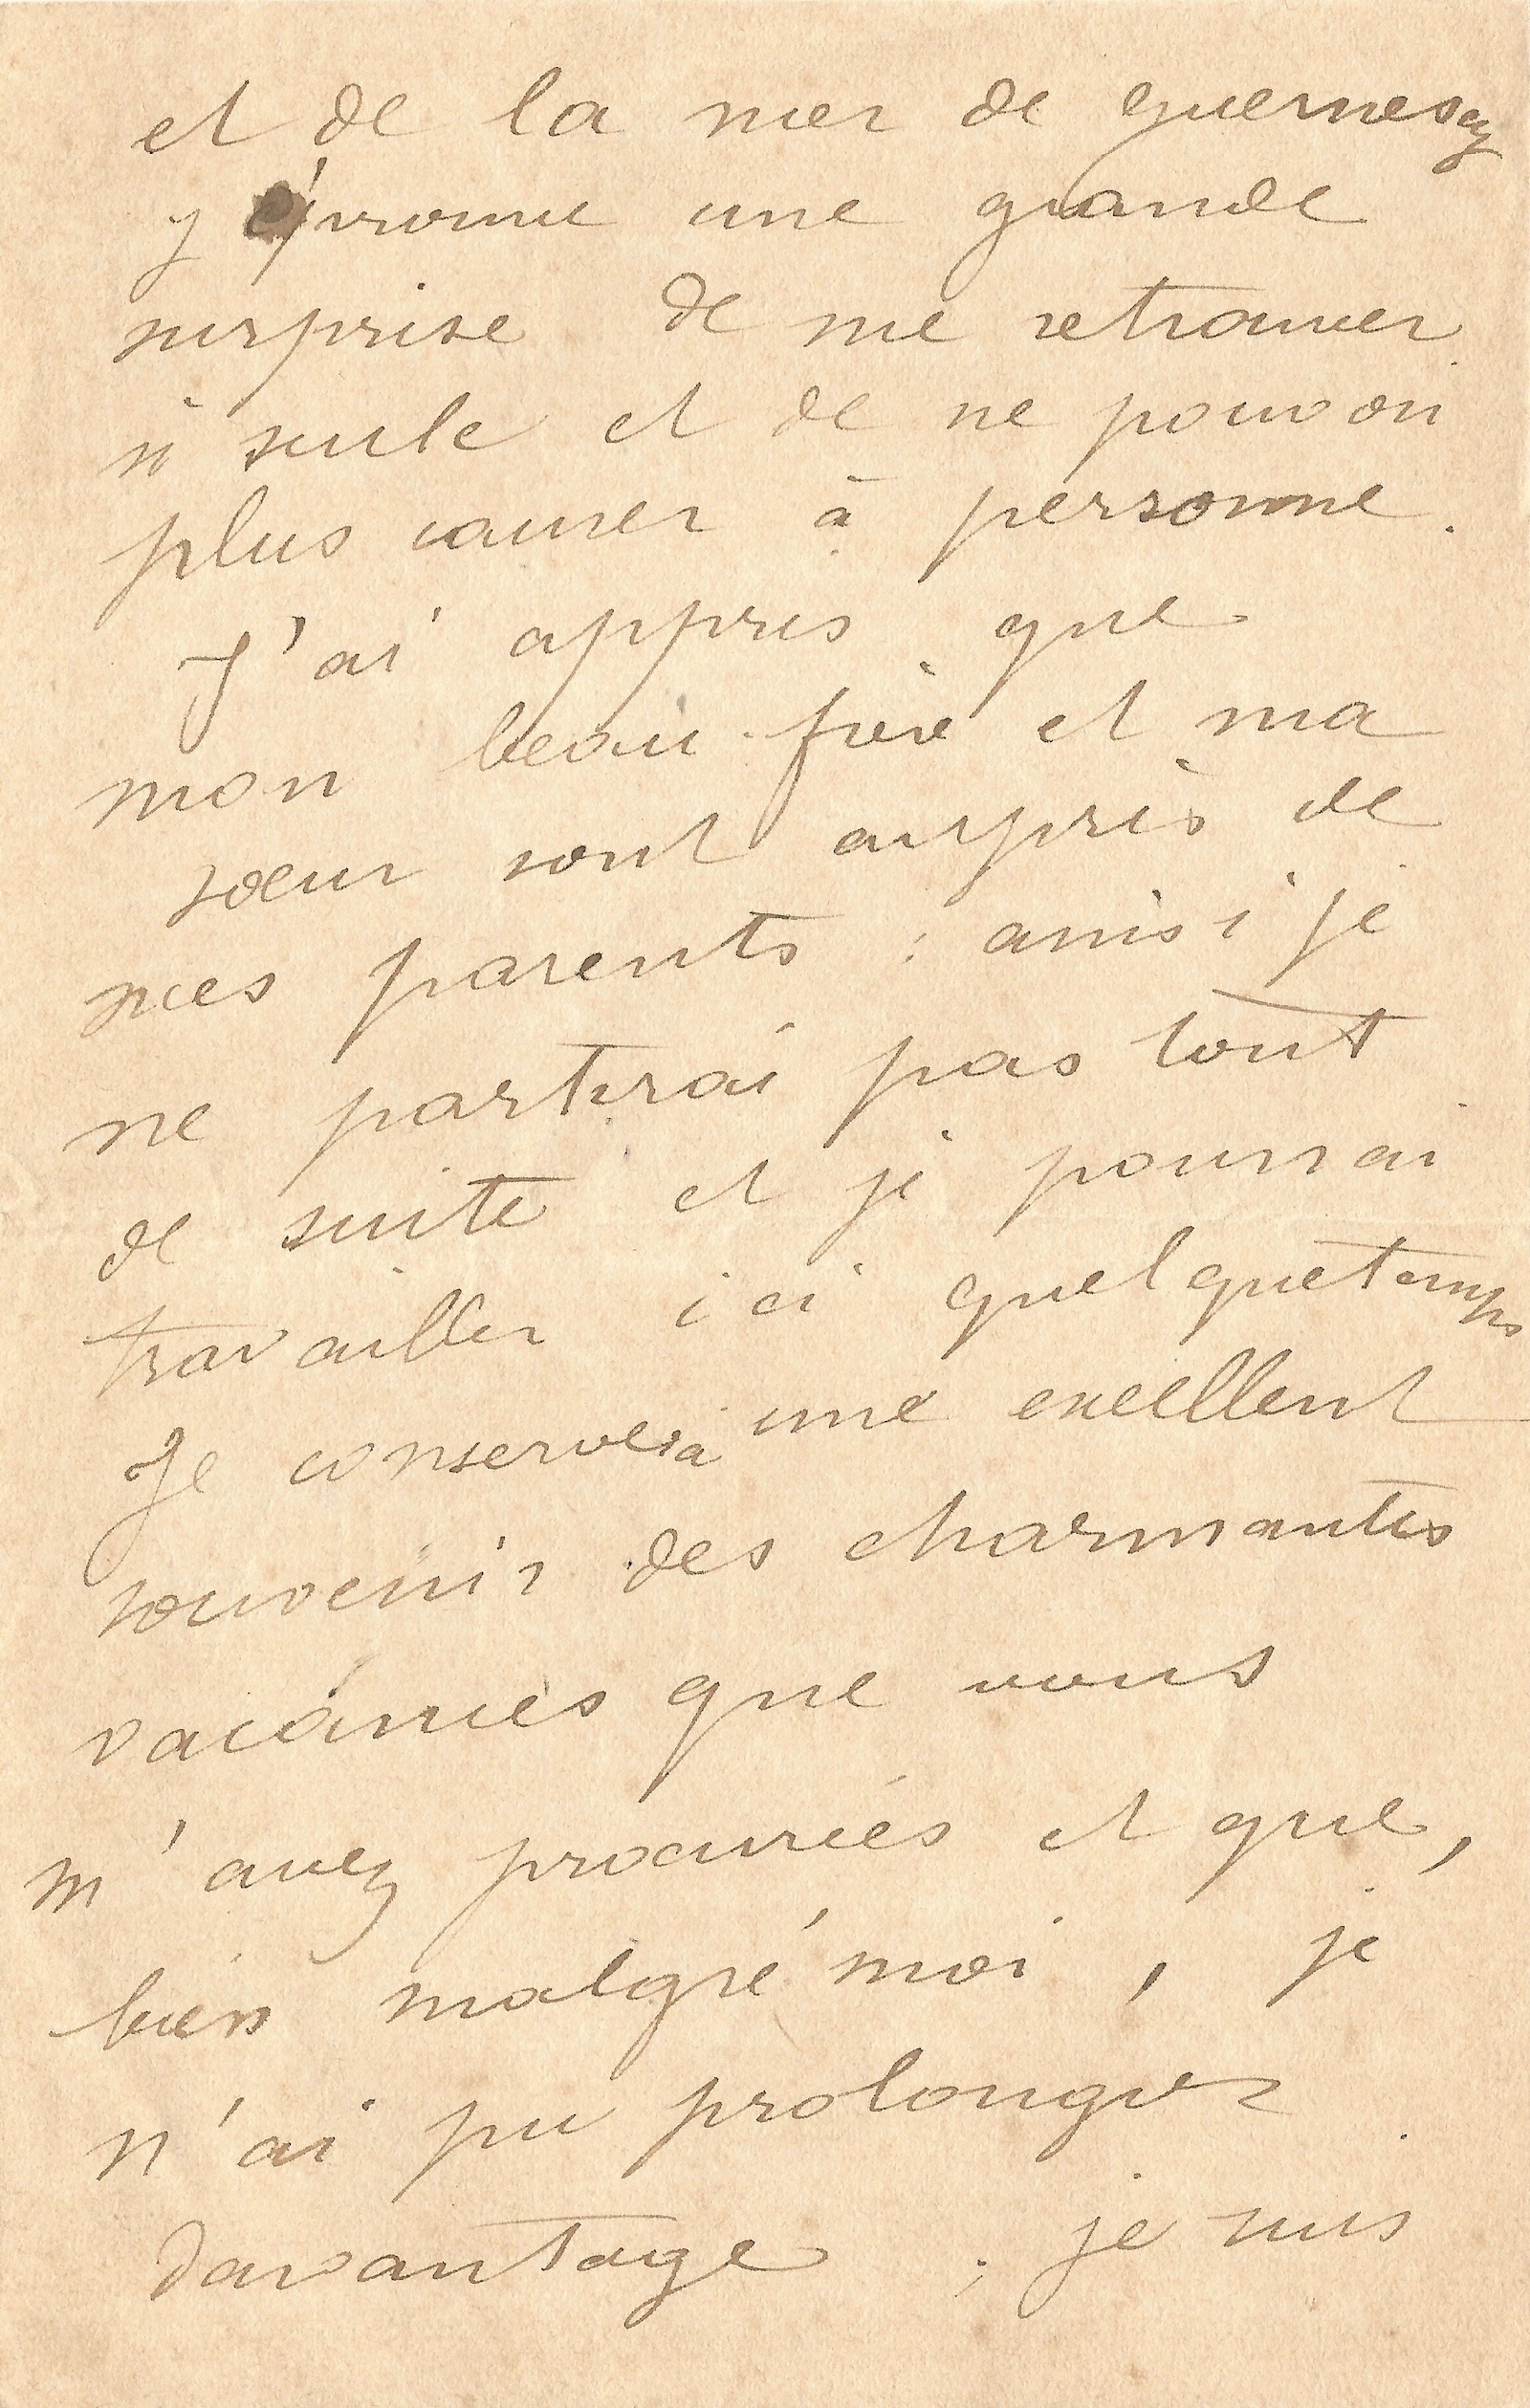 et de la mer de guernesey
j'éprouve une grande
surprise de me retrouver
si seule et de ne pouvoir
plus causer à personne.
J'ai appris que
mon beau-frère et ma
sœur sont auprès de
mes parents : ainsi je
ne partirai pas tout
de suite et je pourrai
travailler ici quelque temps
Je conserverai une excellent
souvenir des charmantes
vacances que vous
m'avez procurées et que,
bien malgré moi, je
n'ai pu prolonger
davantage ; je suis